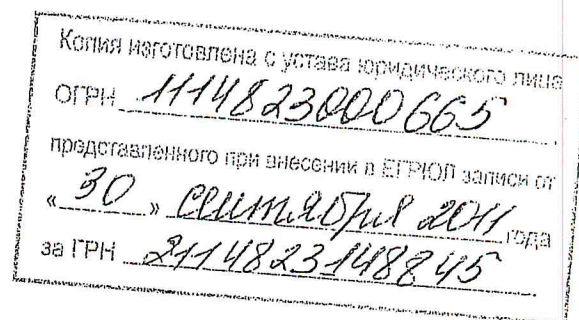 Копия изготовлена с устава юридического лица
ОГРН 1114823000665
представленного при внесении в ЕГРЮЛ записи от
« 30 » сентября 2011 года
за ГРН 2114823148845